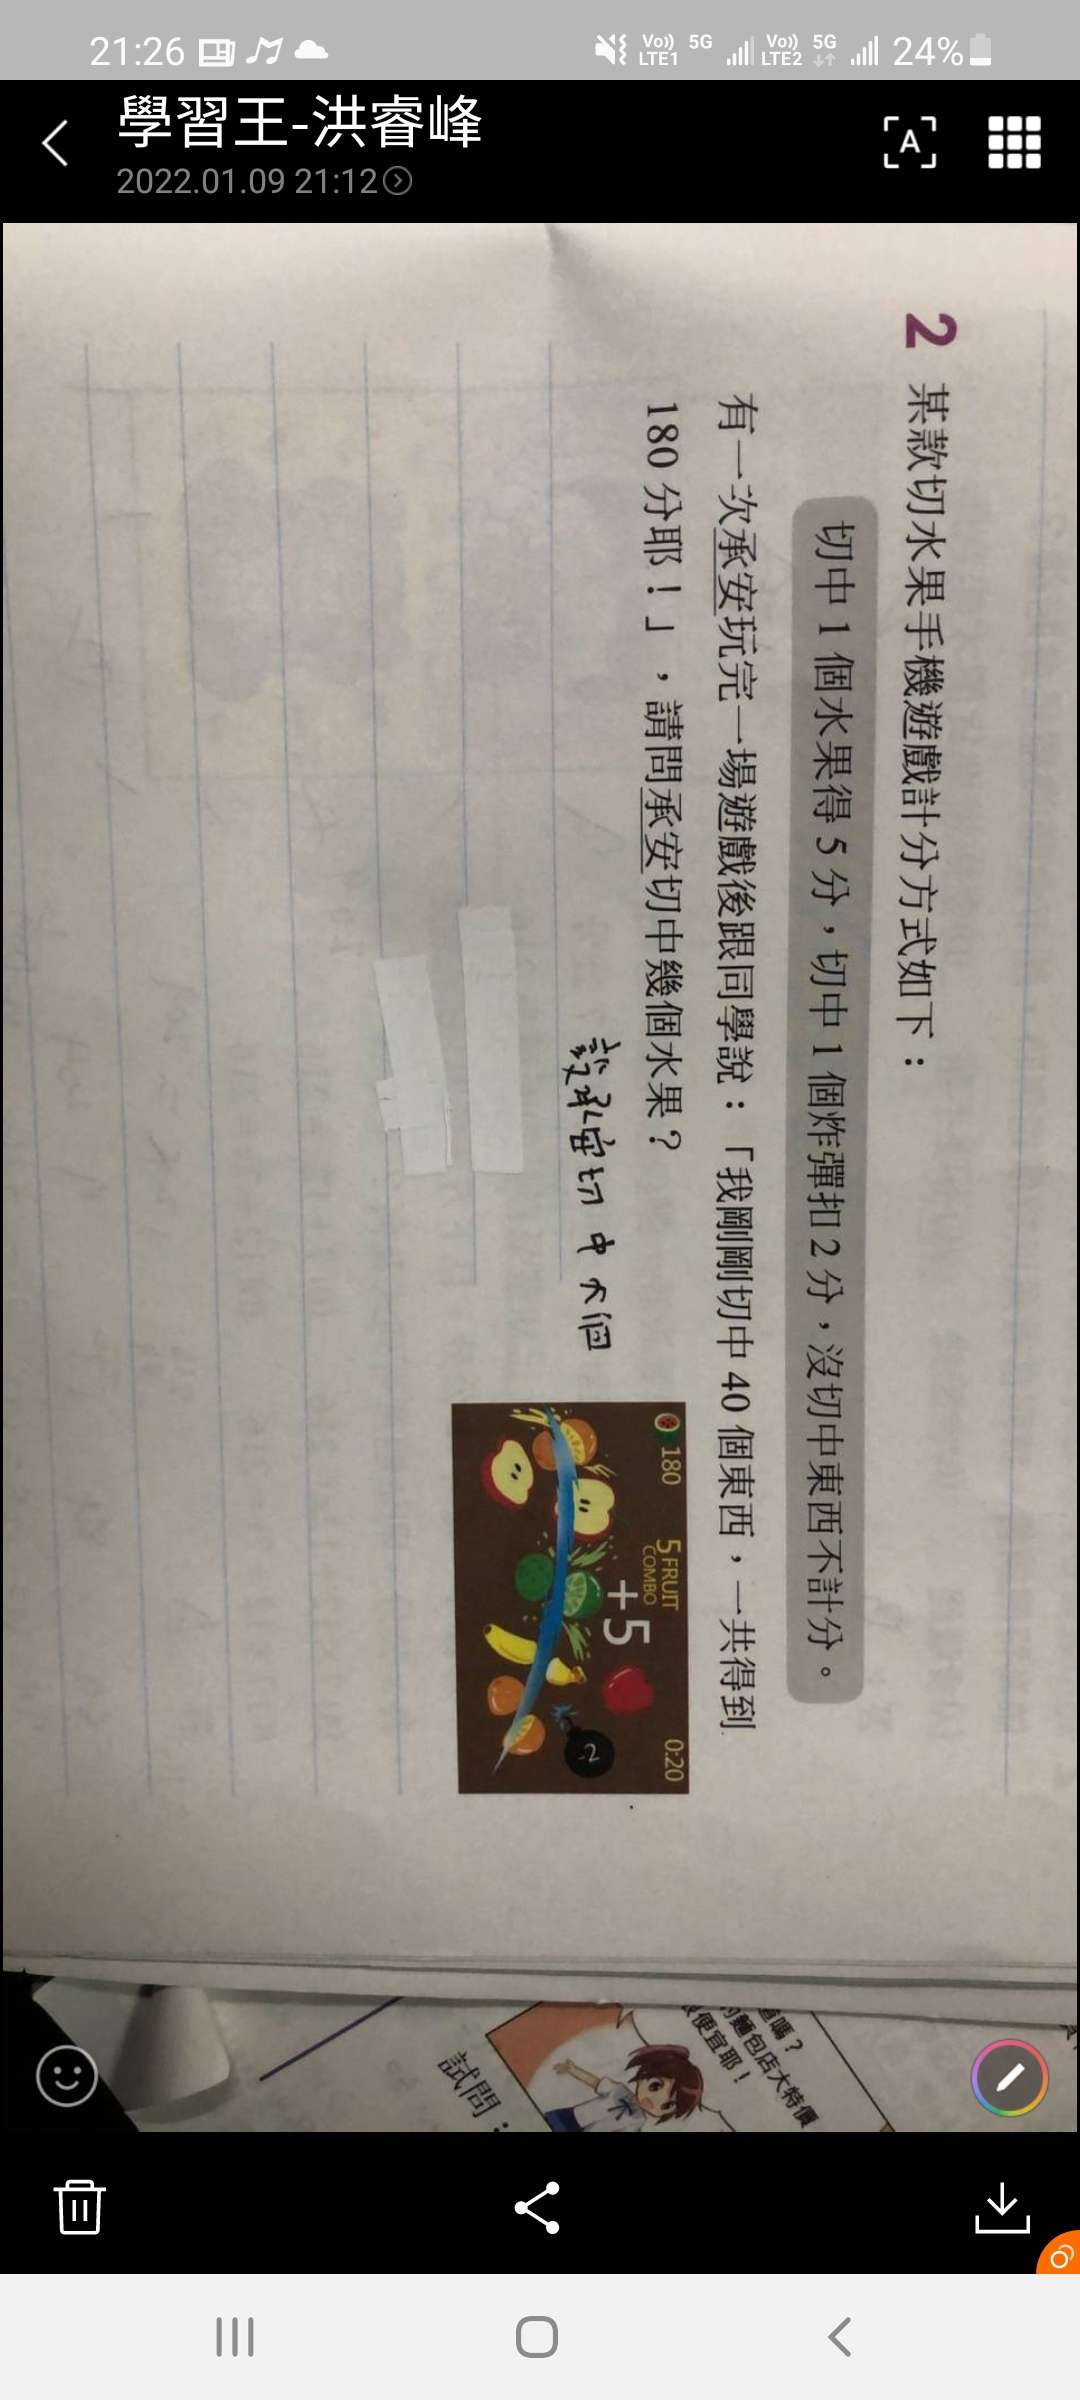 21:26
Vo)) LTE1 5G Vo)) LTE2 5G 24%
學習王-洪睿峰
2022.01.09 21:12
A
2 某款切水果手機遊戲計分方式如下：
切中 1 個水果得 5 分，切中 1 個炸彈扣 2 分，沒切中東西不計分。
有一次承安玩完一場遊戲後跟同學說：「我剛剛切中 40 個東西，一共得到
180 分耶！」，請問承安切中幾個水果？
切中
個
180
5 FRUIT
COMBO
+5
0:20
-2
嗎？
麵包店大特價
便宜耶！
試問：